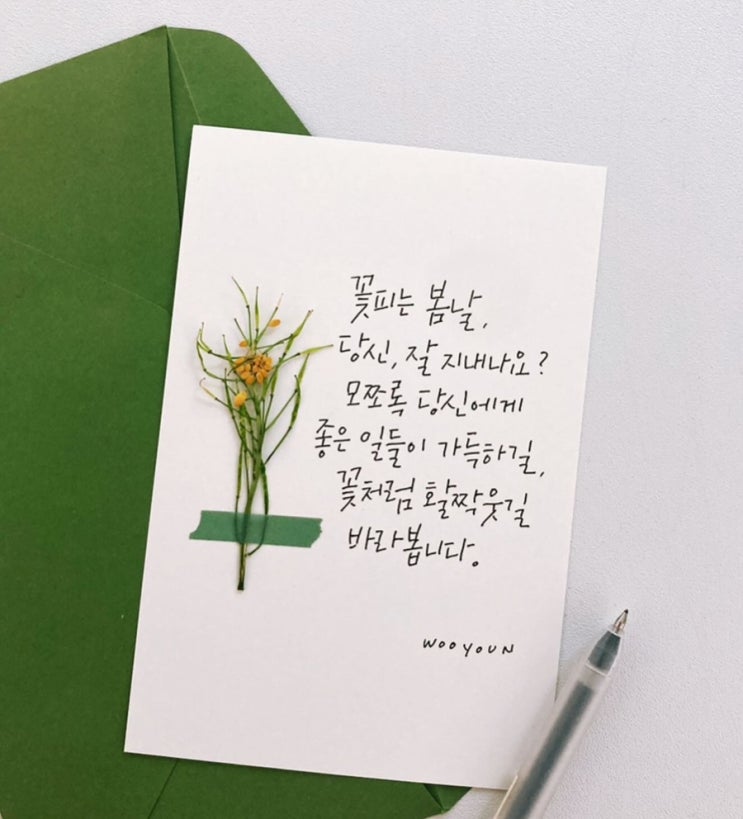 꽃피는 봄날,
당신, 잘 지내나요?
모쪼록 당신에게
좋은 일들이 가득하길,
꽃처럼 활짝웃길
바라봅니다.
WOOYOUN